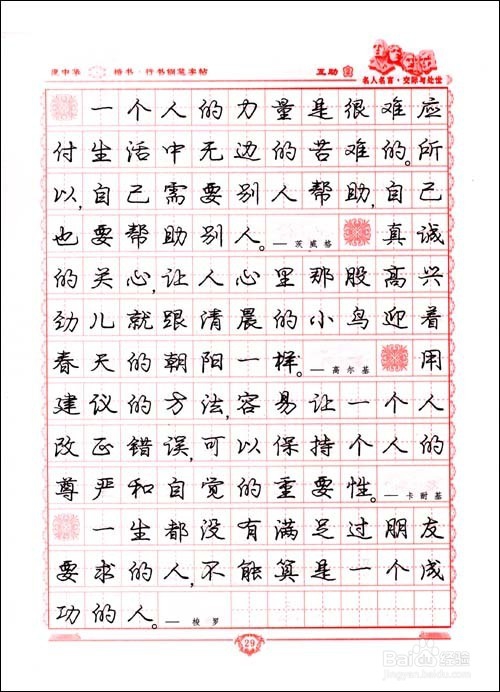 庹中华 楷书·行书钢笔字帖 互助
名人名言·交际与处世
一个人的力量是很难应
付生活中无边的苦难的。所
以,自己需要别人帮助,自己
也要帮助别人。—茨威格 真诚
的关心,让人心里那股高兴
劲儿就跟清晨的小鸟迎着
春天的朝阳一样。—高尔基 用
建议的方法,容易让一个人
改正错误,可以保持个人的
尊严和自觉的重要性。—卡耐基
一生都没有满足过朋友
要求的人,不能算是一个成
功的人。—梭罗
29
Baidu经验
jingyan.baidu.com